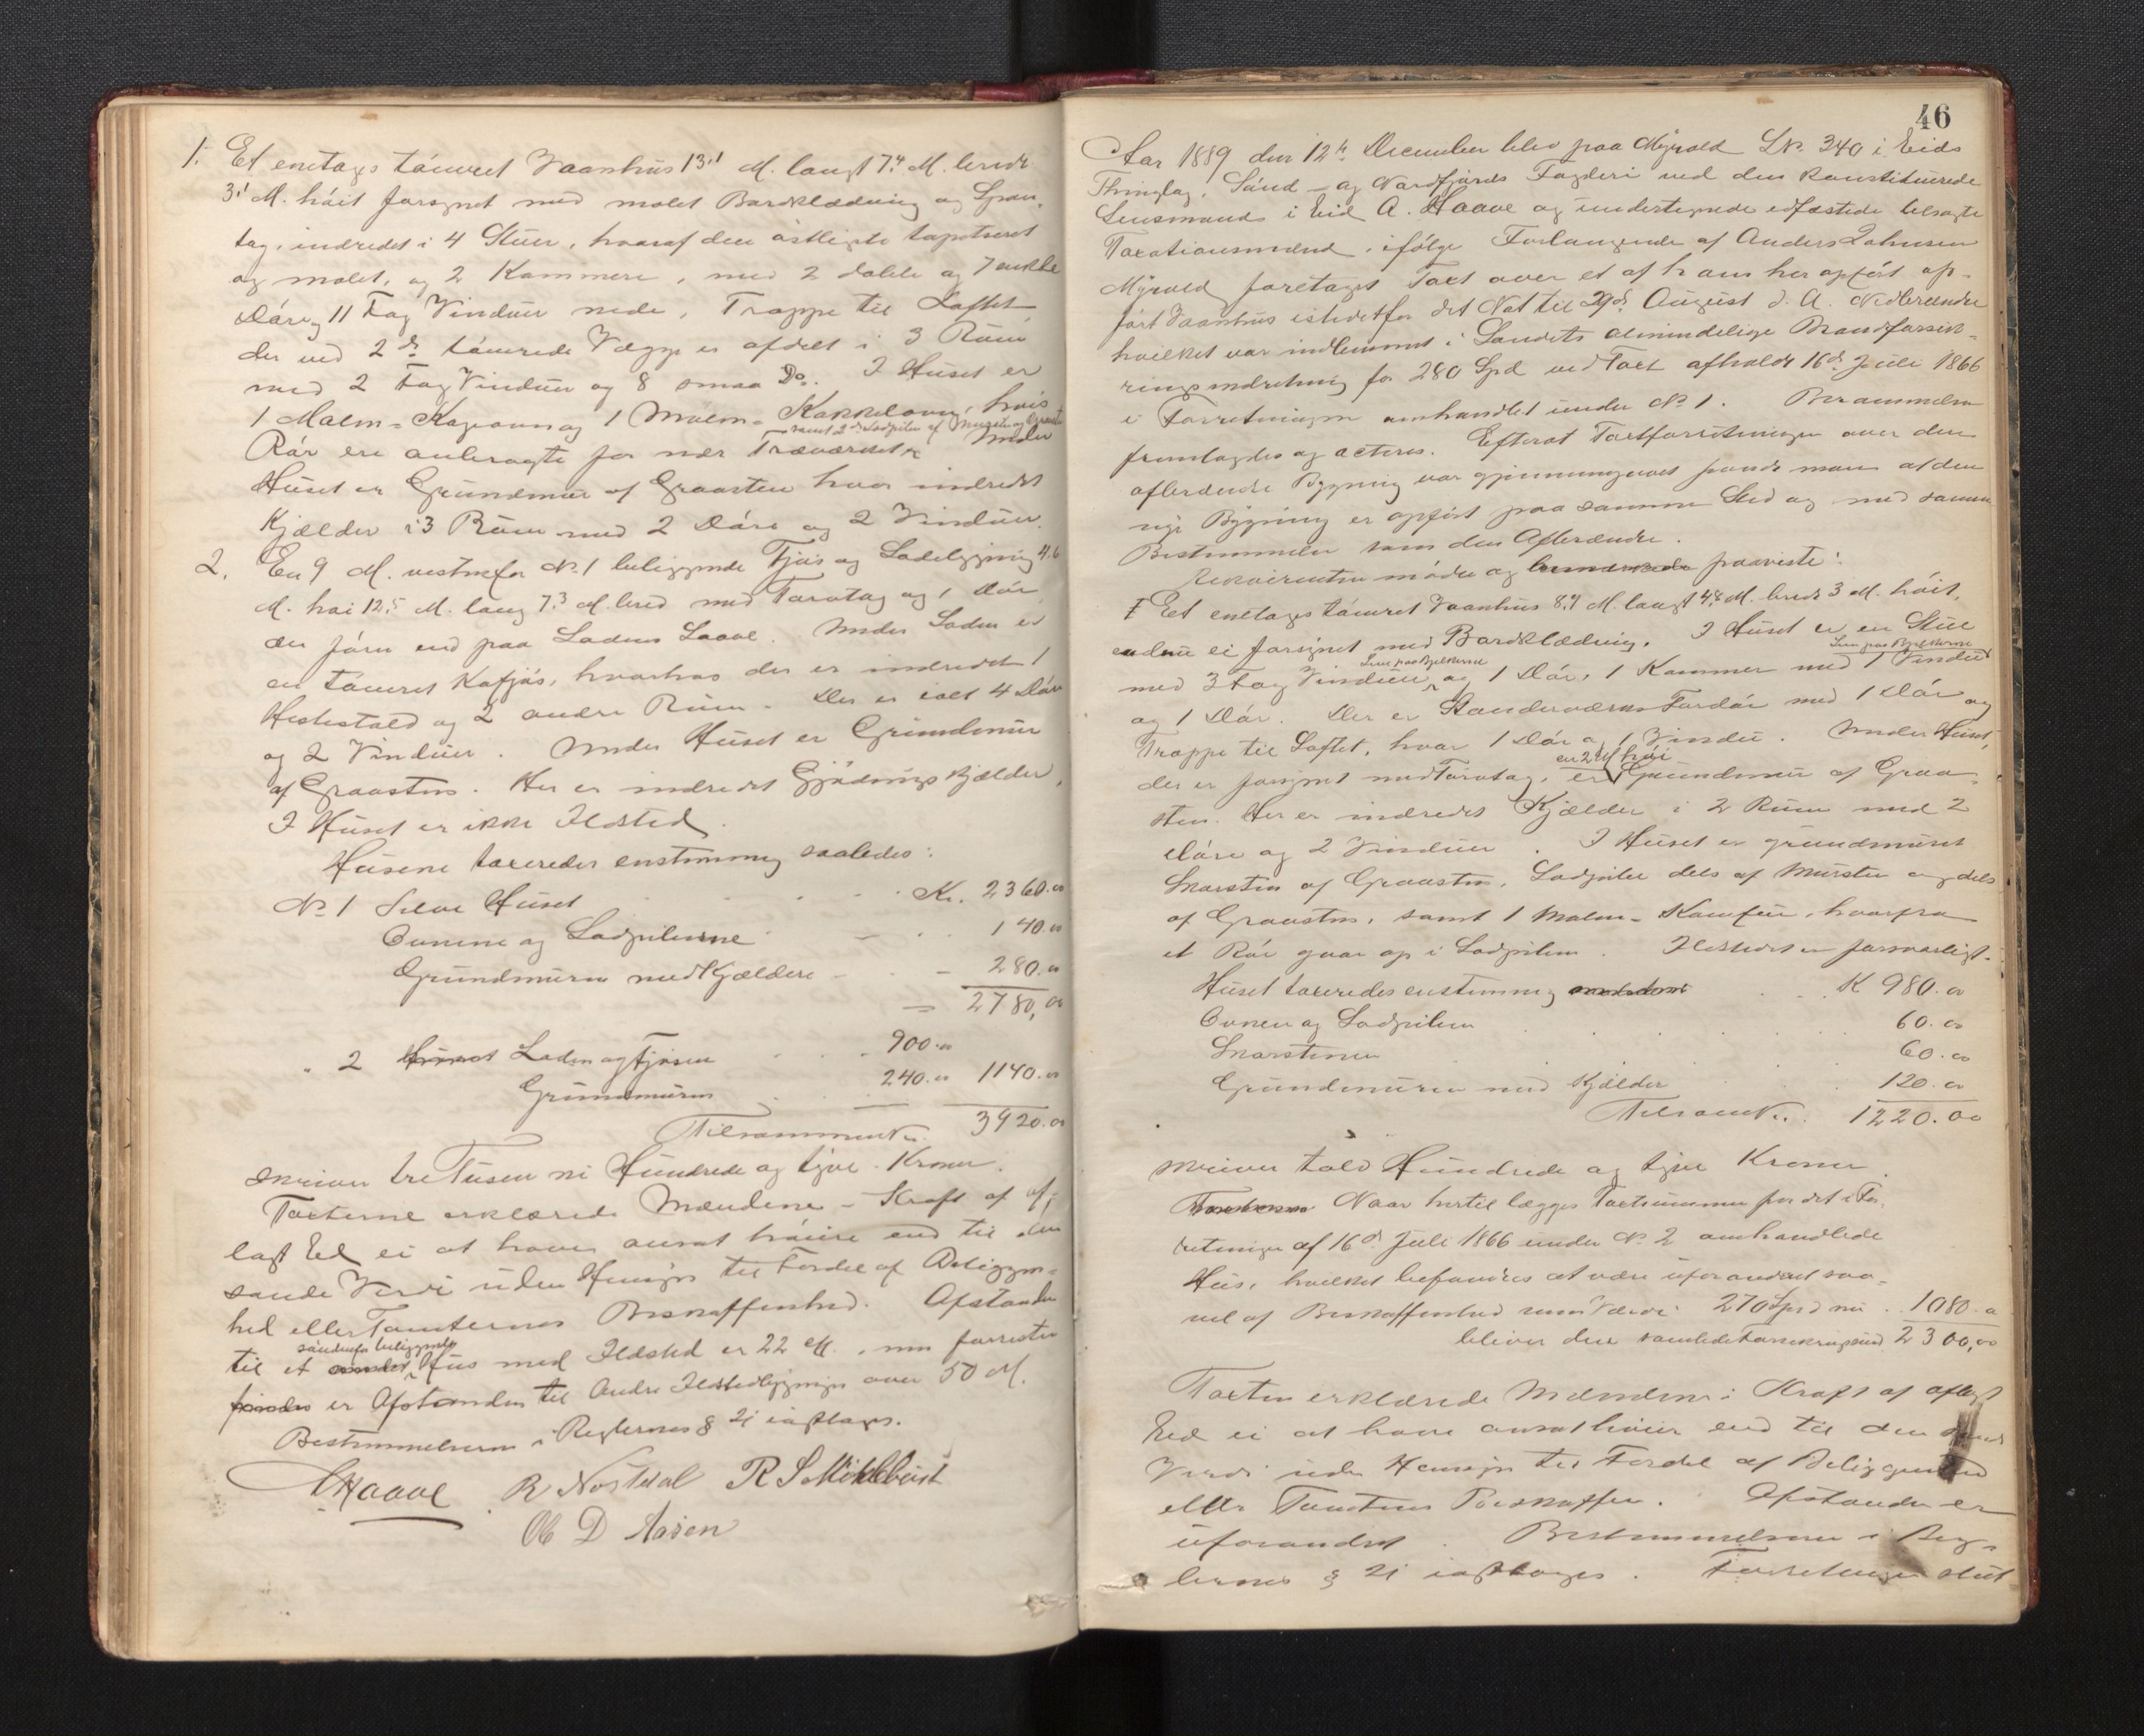 1. Et enetages tømret Vaanhus 13,1 M. langt 7,4 M. bredt
3,1 M. høit forsynet med malet Bordklædning og Spon-
tag, indredet i 4 Stuer, hvoraf den østligste tapetseret
og malet, og 2 Kammere, med 2 doble og 7 enkle
Døre, 11 Fag Vinduer nede, Trappe til Loftet
der ved 2de tømrede Vægge er afdelt i 3 Rum
med 2 Fag Vinduer og 8 smaa Do. I Huset er
1 Malm-Kogeovn og 1 Malm-Kakkelovn, hvis
samt 2de Ladpiber af Mursten og Graasten
Rør ere anbragte for nær Træværket. Under
Huset er Grundmur af Graasten hvor indredet
Kjælder i 3 Rum med 2 Døre og 2 Vinduer.
2. En 9 M. vestenfor No 1 beliggende Fjøs og Ladebygning 4,6
M. høi 12,5 M. lang 7,3 M. bred med Torvtag og 1 Dør
der fører ind paa Ladens Laave. Under Laden er
en tømret Kofjøs, hvorhos der er indredet 1
Hestestald og 2 andre Rum. Der er ialt 4 Døre
og 2 Vinduer. Under Huset er Grundmur
af Graasten. Her er indredet Gjødningskjælder.
I Huset er ikke Ildsted.
Husene taxeredes enstemmig saaledes:
No 1 Selve Huset Kr. 2360.00
Ovnene og Ladpiberne 140.00
Grundmuren med Kjældere 280.00
2780,00
" 2 Huset Laden og Fjøsen 900.00
Grundmuren 240.00 1140.00
Tilsammen Kr. 3920.00
skriver tre Tusen ni Hundrede og tyve Kroner.
Taxterne erklærede Mændene i Kraft af af-
lagt Ed ei at have ansat høiere end til den
sande Værdi uden Hensyn til Fordel af Beliggen-
hed eller Tomternes Beskaffenhed. Afstanden
søndenfor beliggende
til et andet Hus med Ildsted er 22 M., men forresten
findes er Afstanden til Andre Ildstedbygninger over 50 M.
Bestemmelserne i Reglernes § 21 iagttages.
AHaave R Nosdal R S Myklebust
Ole D Aasen
46
Aar 1889 den 12te December blev paa Myrvold LNr. 340 i Eids
Thinglag, Sønd- og Nordfjords Fogderi ved den konstituerede
Lensmand i Eid A. Haave og undertegnede edfæstede tilsagte
Taxationsmænd, ifølge Forlangende af Anders Johnsen
Myrvold foretaget Taxt over et af ham her opført op-
ført Vaanhus istedetfor det Nat til 29de August d. A. Nedbrændte
hvilket var indlemmet i Landets almindelige Brandforsik-
ringsindretning for 280 Spd ved Taxt afholdt 16de Juli 1866
i Forretningen omhandlet under No 1. Berammelsen
fremlagdes og acteres. Efterat Taxtforretningen over den
afbrændte Bygning var gjennemgaaet fandt man at den
nye Bygning er opført paa samme Sted og med samme
Bestemmelse som den Afbrændte.
Rekvirenten mødte og paaviste:
1 Eet enetages tømret Vaanhus 8,9 M. langt 4,8 M. bredt 3 M. høit,
endnu ei forsynet med Bordklædning. I Huset er en Stue
med 3 Fag Vinduer og 1 Dør, 1 Kammer med 1 Vindu
og 1 Dør. Der er Standerværks Fordør med 1 Dør og
Trappe til Loftet, hvor 1 Dør og 1 Vindu. Under Huset,
en 2 M høi
der er forsynet med Torvtag, er Grundmur af Graa-
sten. Her er indredet Kjælder i 2 Rum med 2
Døre og 2 Vinduer. I Huset er grundmuret
Skorsten af Graasten, Ladpibe dels af Mursten og dels
af Graasten, samt 1 Malm-Komfur, hvorfra
et Rør gaar op i Ladpiben. Ildstedet er forsvarligt.
Huset taxeredes enstemmig K 980.00
Ovnen og Ladpiben 60.00
Skorstenen 60.00
Grundmuren med Kjælder 120.00
Tilsam Kr. 1220.00
skriver tolv Hundrede og tyve Kroner.
Naar hertil lægges Taxtsummen for det i For-
retningen af 16de Juli 1866 under No 2 omhandlede
Hus, hvilket befandtes at være uforandret saa-
vel af Beskaffenhed som Værdi 270 Spd nu 1080.00
bliver den samlede Forsikringssum 2300,00
Taxten erklærede Mændene i Kraft af aflagt
Eed ei at have ansat høiere end til den sande
Værdi uden Hensyn til Fordel af Beliggenhed
eller Tomtens Beskaffen. Afstanden er
uforandret. Bestemmelserne i Reg-
lernes § 21 iagttages. Forretningen slut